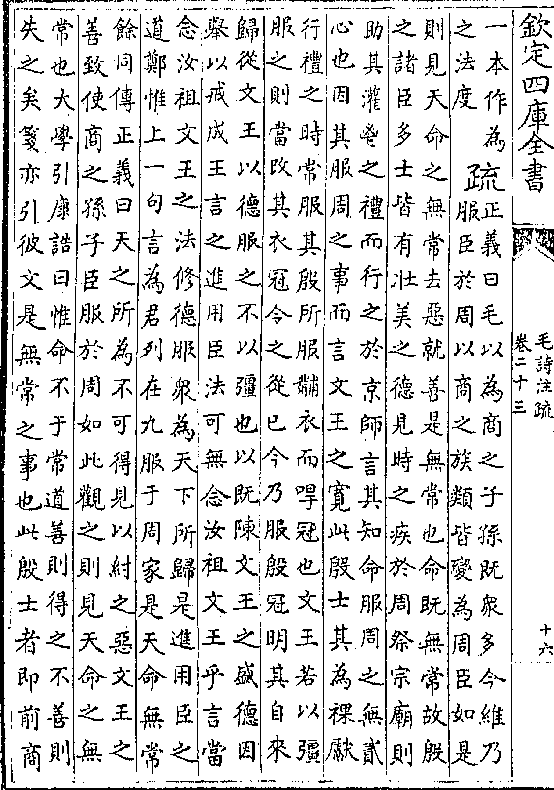 欽定四庫全書
毛詩注疏
卷二十三
十六
一本作為
之法度
疏
正義曰毛以為商之子孫既衆多今維乃
服臣於周以商之族類皆變為周臣如是
則見天命之無常去惡就善是無常也命既無常故殷
之諸臣多士皆有壯美之德見時之疾於周祭宗廟則
助其灌鬯之禮而行之於京師言其知命服周之無貳
心也因其服周之事而言文王之寛此殷士其為祼獻
行禮之時常服其殷所服黼衣而冔冠也文王若以彊
服之則當改其衣冠令之從已今乃服殷冠明其自來
歸從文王以德服之不以彊也以既陳文王之盛德因
舉以戒成王言之進用臣法可無念汝祖文王乎言當
念汝祖文王之法修德服衆為天下所歸是進用臣之
道鄭惟上一句言為君列在九服于周家是天命無常
餘同傳正義曰天之所為不可得見以紂之惡文王之
善致使商之孫子臣服於周如此觀之則見天命之無
常也大學引康誥曰惟命不于常道善則得之不善則
失之矣箋亦引彼文是無常之事也此殷士者即前商